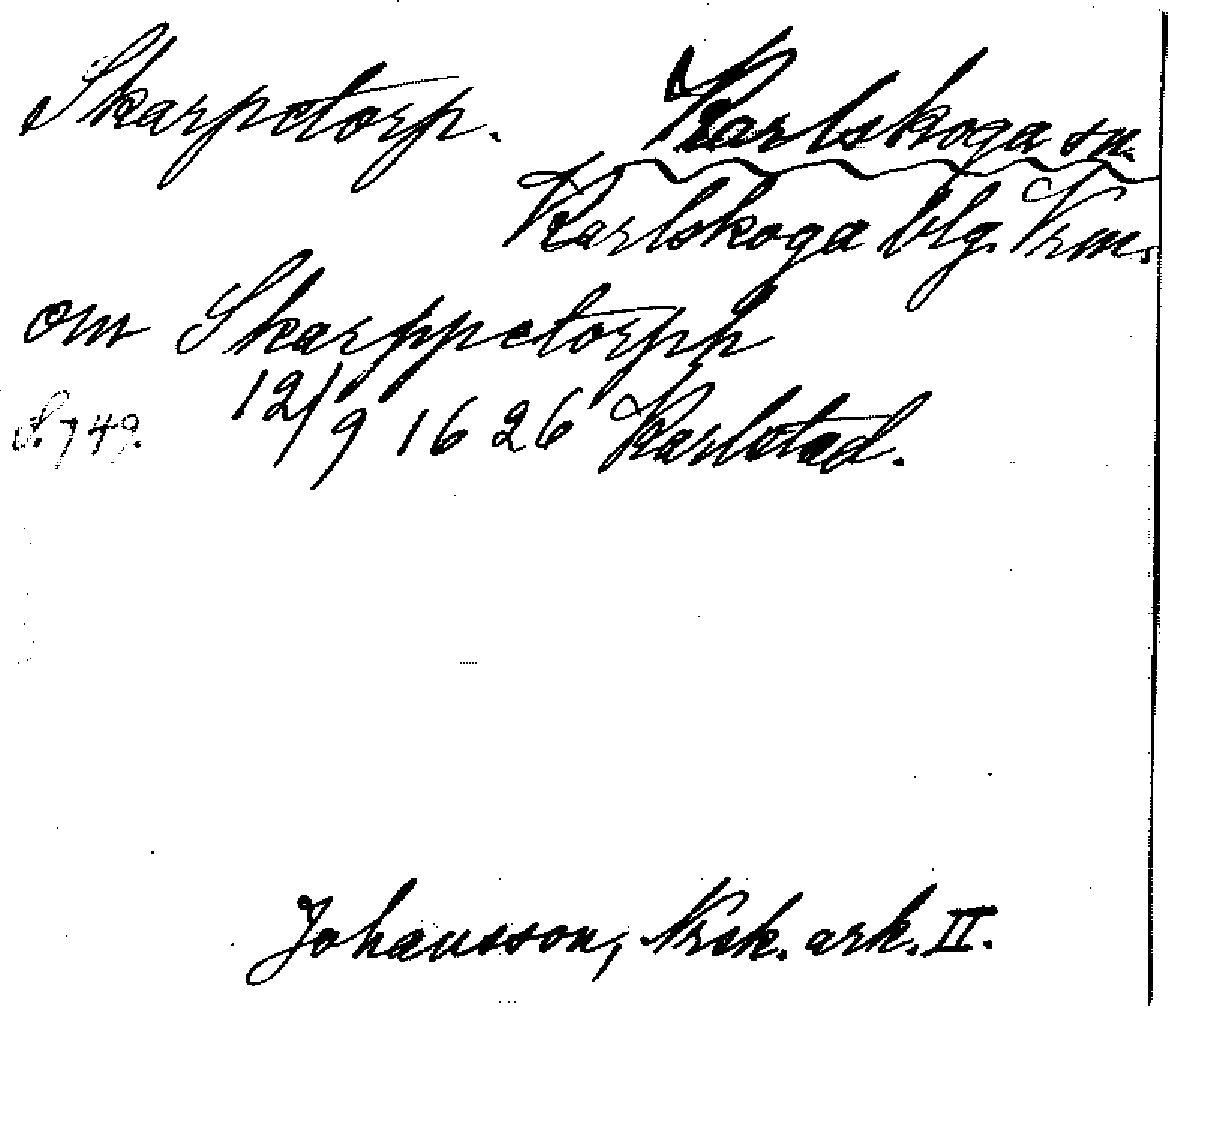 Skarpetorp. Karlskoga sn.
Karlskoga blg. Vrm.
om Skarppetorph
S. 749. 12/9 1626 Karlstad.
Johansson, Nrk. ark. II.